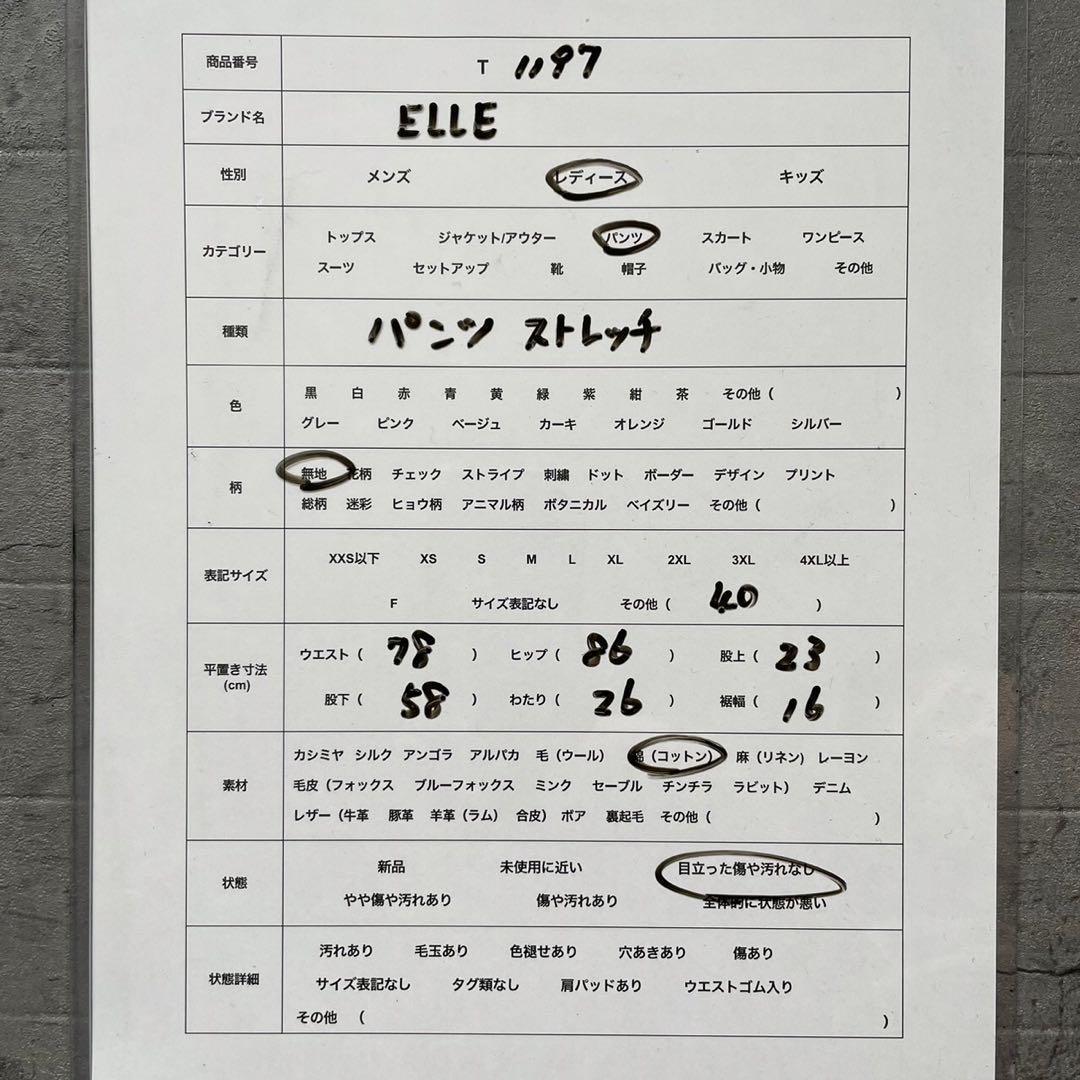 商品番号 T 1197
ブランド名 ELLE
性別 メンズ レディース キッズ
カテゴリー
トップス ジャケット/アウター パンツ スカート ワンピース
スーツ セットアップ 靴 帽子 バッグ・小物 その他
種類 パンツ ストレッチ
色
黒 白 赤 青 黄 緑 紫 紺 茶 その他( )
グレー ピンク ベージュ カーキ オレンジ ゴールド シルバー
柄
無地 花柄 チェック ストライプ 刺繍 ドット ボーダー デザイン プリント
総柄 迷彩 ヒョウ柄 アニマル柄 ボタニカル ペイズリー その他( )
表記サイズ
XXS以下 XS S M L XL 2XL 3XL 4XL以上
F サイズ表記なし その他( 40 )
平置き寸法
(cm)
ウエスト( 78 ) ヒップ( 86 ) 股上( 23 )
股下( 58 ) わたり( 26 ) 裾幅( 16 )
素材
カシミヤ シルク アンゴラ アルパカ 毛(ウール) 綿(コットン) 麻(リネン) レーヨン
毛皮(フォックス ブルーフォックス ミンク セーブル チンチラ ラビット) デニム
レザー(牛革 豚革 羊革(ラム) 合皮) ボア 裏起毛 その他( )
状態
新品 未使用に近い 目立った傷や汚れなし
やや傷や汚れあり 傷や汚れあり 全体的に状態が悪い
状態詳細
汚れあり 毛玉あり 色褪せあり 穴あきあり 傷あり
サイズ表記なし タグ類なし 肩パッドあり ウエストゴム入り
その他 ( )